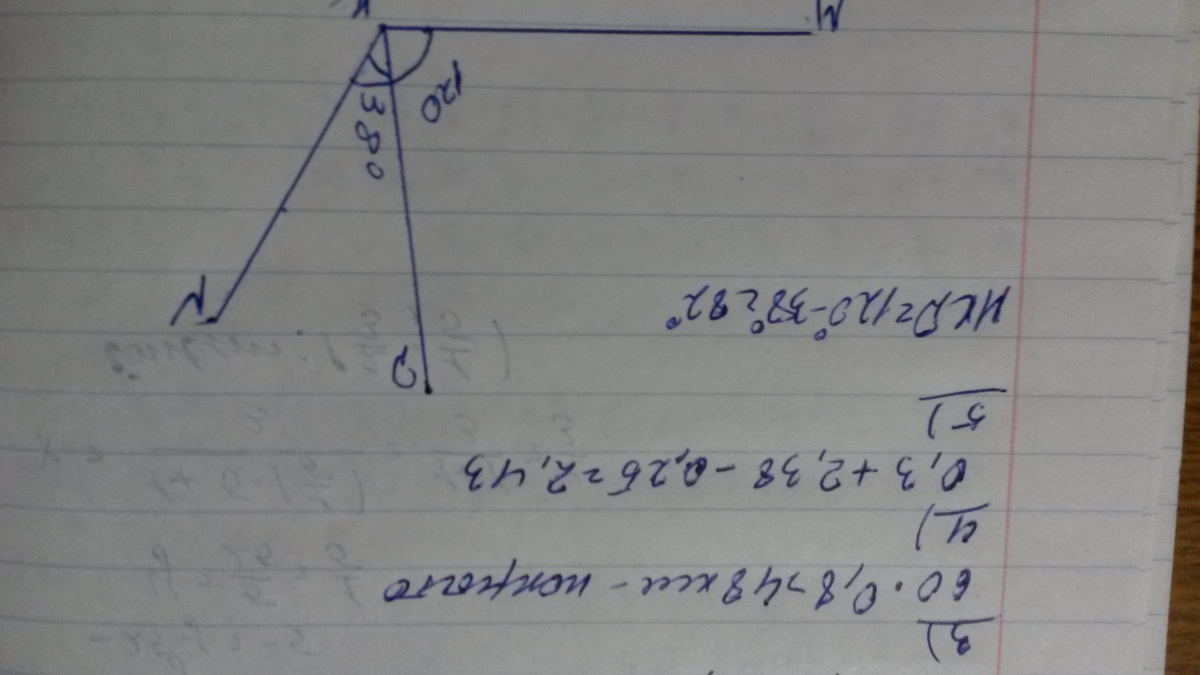 3)
60 · 0,8 = 48 км -
4)
0,3 + 2,38 - 0,25 = 2,43
5)
MKD = 120° - 38° = 82°
D
N
38°
120
K
M